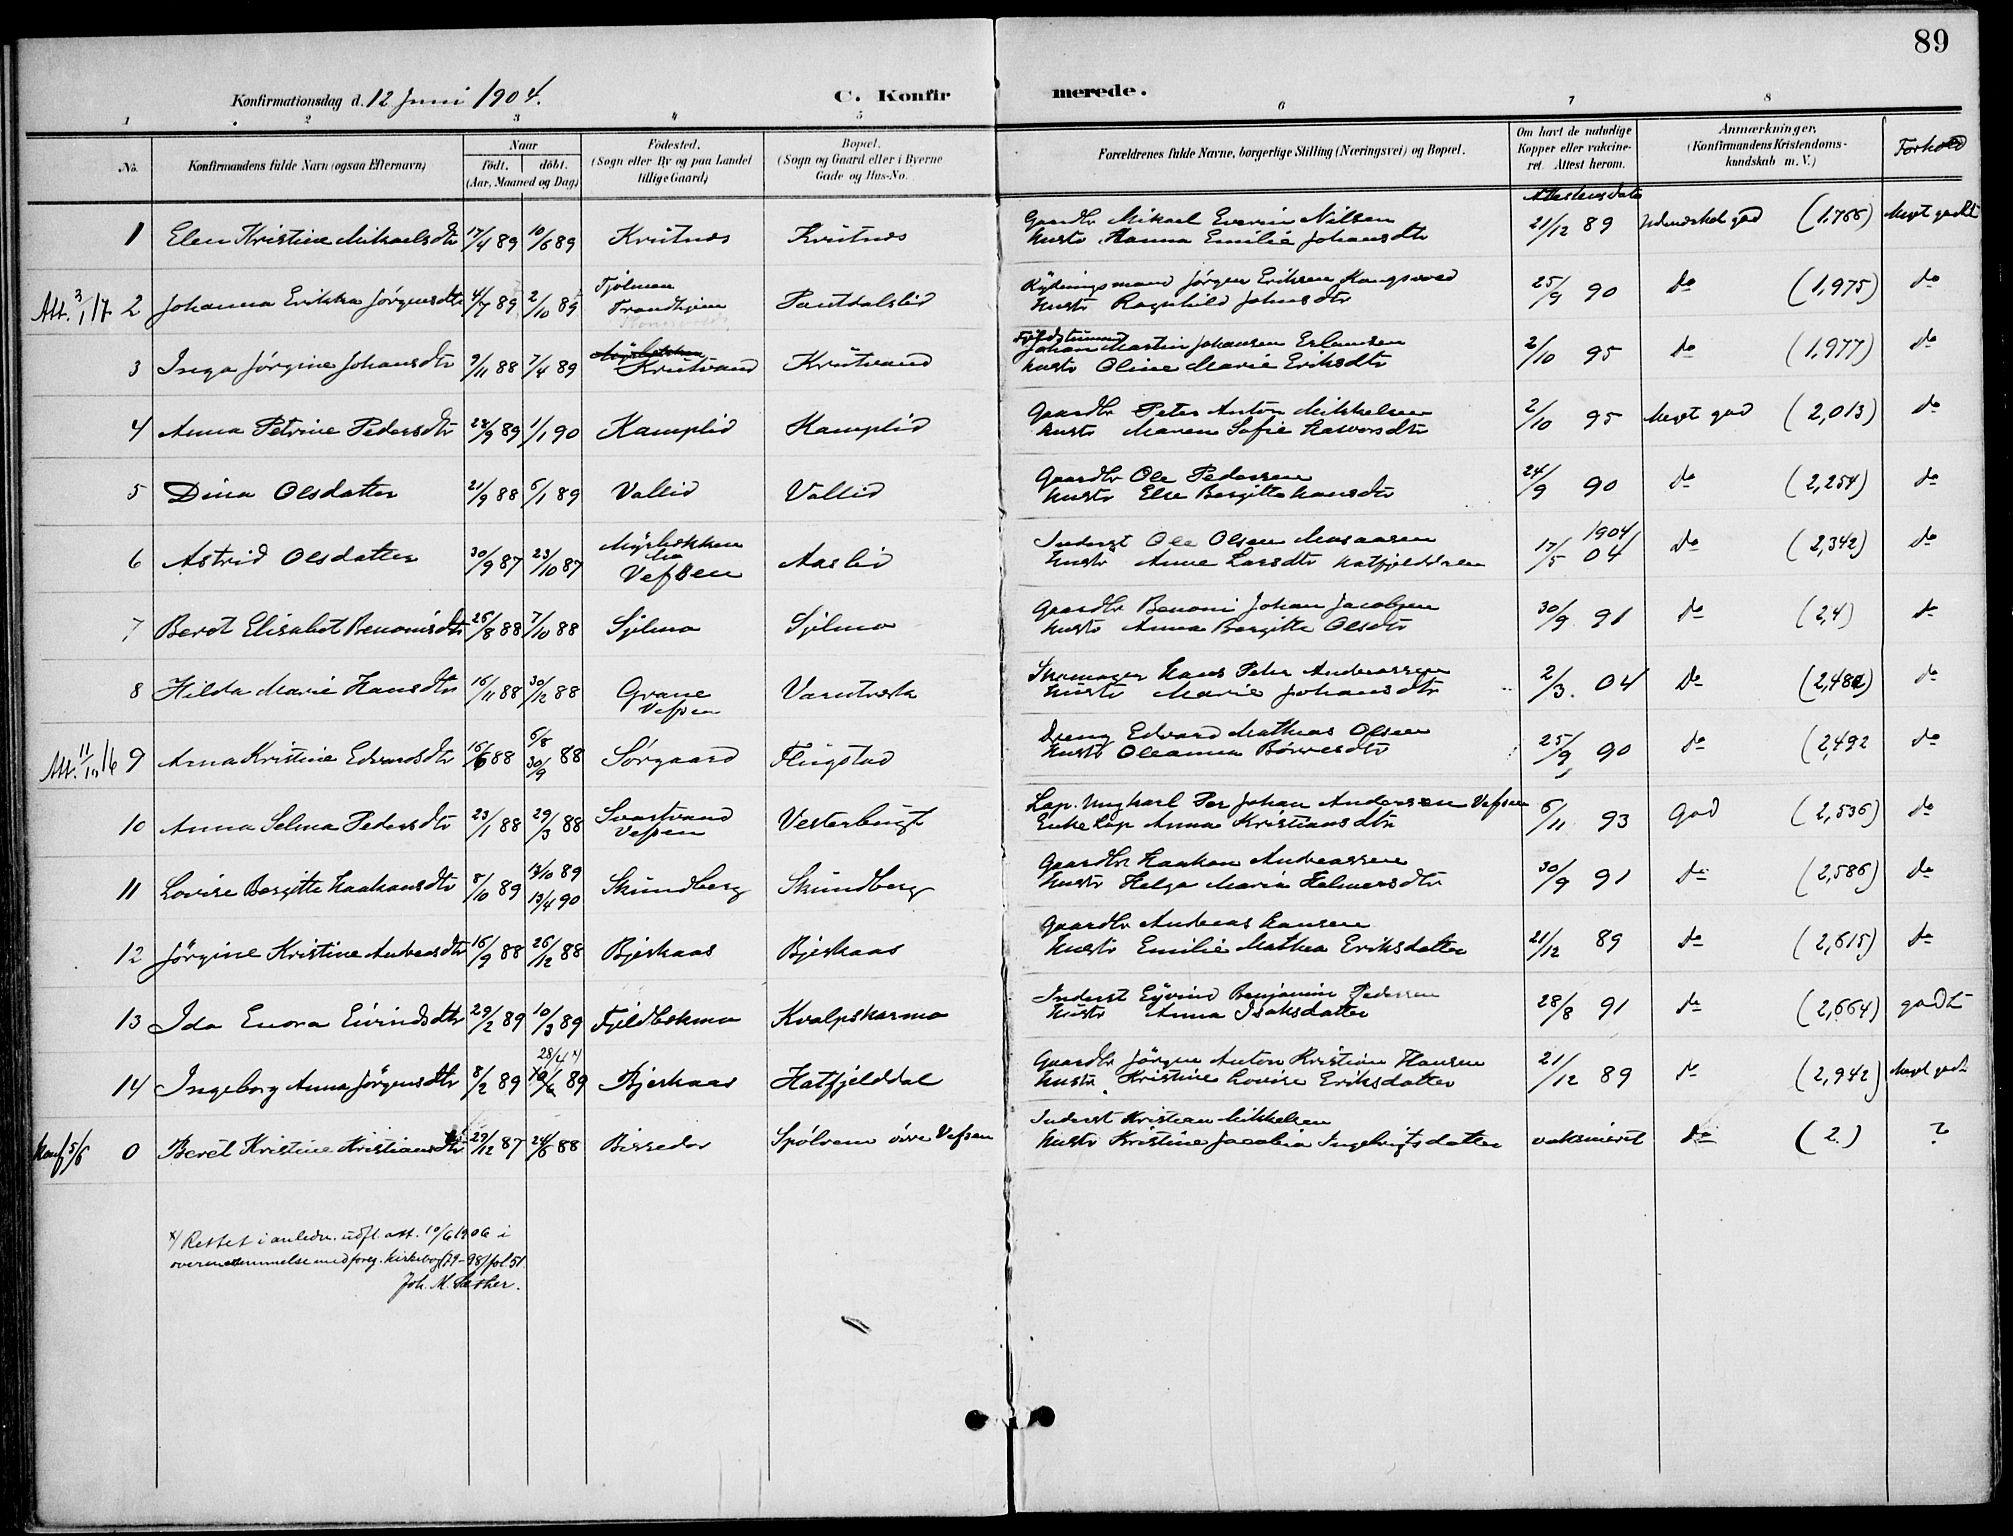 89
Konfirmationsdag d. 12 Juni 1904. C. Konfirmerede.
1 2 3 4 5 6 7 8
No. Konfirmandens fulde Navn (ogsaa Efternavn) Naar født. døbt. (Aar, Maaned og Dag) Fødested. (Sogn eller By og paa Landet tillige Gaard) Bopæl. (Sogn og Gaard eller i Byerne Gade og Hus-No. Forældrenes fulde Navne, borgerlige Stilling (Næringsvei) og Bopæl. Om havt de naturlige Kopper eller vaccineret. Attest herom. Anmærkninger, (Konfirmandens Kristendomskundskab m. V.) Forhold
Attestens dato
1 Elen Kristine Mikaelsdtr 17/4 89 10/6 89 Krutnes Krutnes Gaardbr Mikael Evenin Nilsen 21/12 89 Udmærket god (1.766) Meget godt
Hustr. Hanna Emilie Johansdtr
Att. 3/1 17. 2 Johanna Erikka Jørgensdtr 4/7 89 2/10 89 Fjølman Trondhjem Pantdalslid Rydningsmand Jørgen Eriksen Kongsvold 25/9 90 do (1,975) do
Hustr Ragnhild Johnsdtr
3 Inga Jørgine Johansdtr 9/11 88 7/4 89 Krutvand Krutvand Johan Martin Johansen Erlansen 2/10 95 do (1,977) do
Hustr Oline Marie Eriksdtr
4 Anna Petrine Pedersdtr 28/9 89 1/1 90 Kamplid Kamplid Gaardbr Peter Anton Mikkelsen 2/10 95 Meget god (2,013) do
Hustr Maren Sofie Halvorsdtr
5 Dina Olsdatter 21/9 88 6/1 89 Vallid Vallid Gaardbr Ole Pedersen 24/9 90 do (2,254) do
Hustr Else Bergitte Hansdtr
6 Astrid Olsdatter 30/9 87 23/10 87 Myrbækken Vefsen Aaslid Inderst Ole Olsen Mosaasen 17/5 1904/04 do (2,342) do
Hustr Anne Larsdtr Hatfjelddalen
7 Beret Elisabet Benonisdtr 26/8 88 7/10 88 Sjelmo Sjelmo Gaardbr Benoni Johan Jacobsen 30/9 91 do (2,4) do
Hustr Anna Bergitte Olsdtr
8 Hilda Marie Hansdtr 16/11 88 30/12 88 Grane Vefsen Varntresk Skomager Hans Peter Andreassen 2/3. 04 Do (2,482) do
Hustr Marie Johansdtr
Att. 11/10 16 9 Anna Kristine Edvardsdtr 16/6 88 6/8 30/9 88 Sørgaard Flugstad Dreng Edvard Mathias Olsen 25/9 90 do (2,492 do
Hustr Oleanna Børresdtr
10 Anna Selma Pedersdtr 23/1 88 29/3 88 Svartvand Vefsen Vesterbugt Lap. Ungkarl Per Johan Andersen Vefsen 6/11 93 God (2,536) do
Enke Lap Anna Kristiansdtr
11 Lovise Bergitte Haakansdtr 8/10 89 13/10 89 13/4 90 Skundberg Skundberg Gaardbr Haakon Andreassen 30/9 91 do (2,586) do
Hustr Helga Maria Helmersdtr
12 Jørgine Kristine Andreasdtr 16/9 88 26/12 88 Bjerkaas Bjerkaas Gaardbr Andreas Hansen 21/12 89 do (2,615) do
Hustr Emilie Mathea Eriksdatter
13 Ida Enora Eivindsdtr 29/2 89 10/3 89 Fjeldbekmo Kvalpskarmo Inderst Eyvind Benjamin Pedersen 28/8 91 do (2,664) godt
Hustr Anna Isaksdatter
14 Ingeborg Anna Jørgensdtr 8/2 89 28/4 x) 89 Bjerkaas Hatfjelddal Gaardbr Jørgen Anton Kristian Hansen 21/12 89 do (2,942) Meget godt
Hustr. Kristine Lovise Eriksdatter
Konf 5/6 0 Beret Kristine Kristiansdtr 29/12 87 24/6 88 Bisseder Spølrem øvre Vefsen Inderst Kristian Mikkelsen vaksineret do (2.) ?
Hustr Kristine Jacobia Ingebrigtsdatter
x) Rettet i anledn. udft. att. 10/6 1906 i
overensstemmelse med foreg. kirkebog (79-98) fol. 51
Joh. M. Sæther.